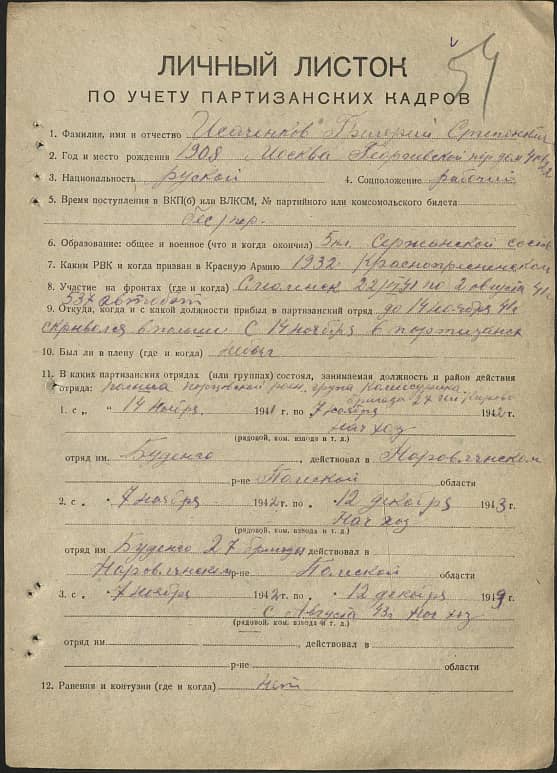 54
ЛИЧНЫЙ ЛИСТОК
ПО УЧЕТУ ПАРТИЗАНСКИХ КАДРОВ
1. Фамилия, имя и отчество Исаченков Григорий
2. Год и место рождения 1908 Москва Георгиевской пер дом 4 кв
3. Национальность Руской 4. Соцположение рабочий
5. Время поступления в ВКП(б) или ВЛКСМ, № партийного или комсомольского билета
бес/пар.
6. Образование: общее и военное (что и когда окончил) 5 кл. Сержанской состав
7. Каким РВК и когда призван в Красную Армию 1932 Краснопресненской
8. Участие на фронтах (где и когда) Смоленск по 2 августа 41
537 автобат
9. Откуда, когда и с какой должности прибыл в партизанский отряд до 14 ноября 41г
скрывался С 14 ноября в
10. Был ли в плену (где и когда) небыл
11. В каких партизанских отрядах (или группах) состоял, занимаемая должность и район действия
отряда: група
бригада 27 им Кирова
1. с „ „ 14 Ноября 1941 г. по 7 ноября 1942 г.
Нач хоз
(рядовой, ком. взвода и т. д.)
отряд им Буденго, действовал в Наровлянском
р-не Полеской области
2. с 7 ноября 1942 г. по 12 декабря 1943 г.
Нач хоз
(рядовой, ком. взвода и т. д.)
отряд им Буденго 27 бригады действовал в
Наровлянским р-не Полеской области
3. с 7 ноября 1942 г. по 12 декабря 194 г.
с Августа 43г Нач хоз
(рядовой, ком. взвода и т. д.)
отряд им , действовал в
р-не области
12. Ранения и контузии (где и когда) нет